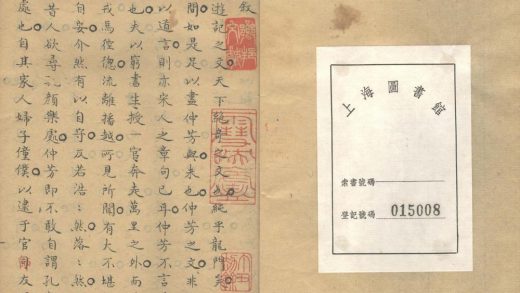 叙
遊記之文天下絶奇之文也純乎龍門矣
間如是足以盡仲芳與未也仲芳之文非
以道言則亦宋人之章句已耳仲芳不言
也夫以窮書生授一官奔走萬里之外而
戎馬倥傯流離播越所見所聞有大不堪
自妄介然有以自守反若浩〻然落〻然
昔人欲尋孔顏樂處仲芳即不敢自謂孔
處也自其家人婦子僮僕以逮于官友
上海圖書館
索書號碼
登記號碼 015008